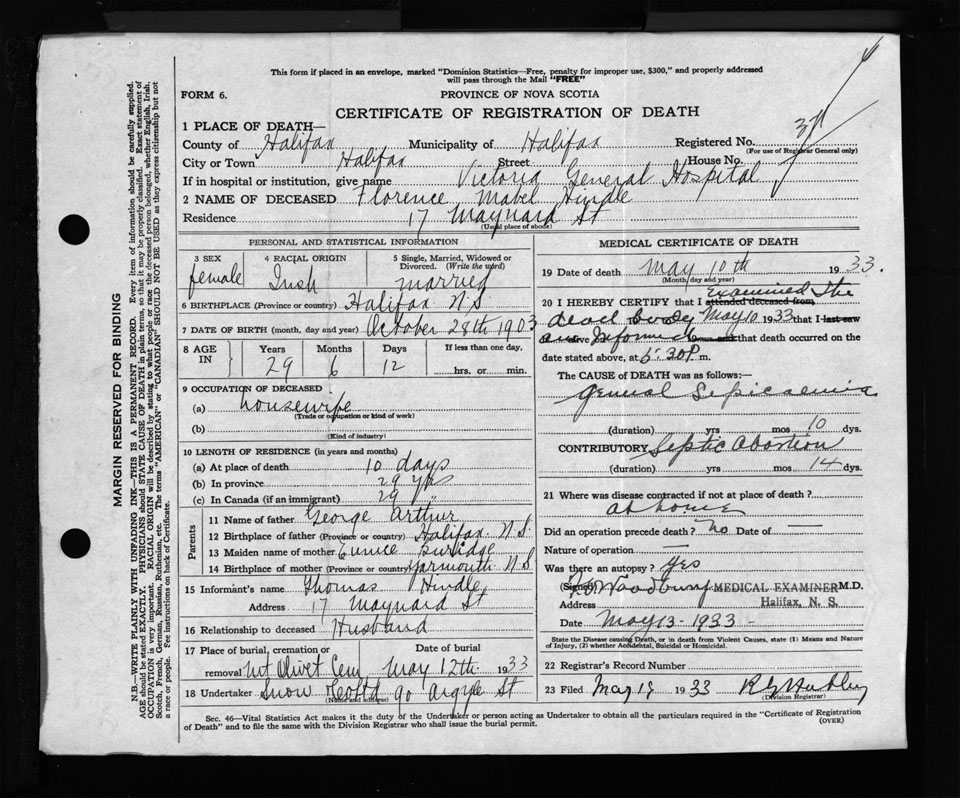 This form if placed in an envelope, marked "Dominion Statistics—Free, penalty for improper use, $300," and properly addressed
will pass through the Mail "FREE"
FORM 6.
PROVINCE OF NOVA SCOTIA
CERTIFICATE OF REGISTRATION OF DEATH
1 PLACE OF DEATH—
County of Halifax Municipality of Halifax Registered No.
(For use of Registrar General only)
City or Town Halifax Street House No.
If in hospital or institution, give name Victoria General Hospital
2 NAME OF DECEASED Florence Mabel Hindle
Residence 17 Maynard St
(Usual place of abode)
PERSONAL AND STATISTICAL INFORMATION
3 SEX female
4 RACIAL ORIGIN Irish
5 Single, Married, Widowed or Divorced. (Write the word) married
6 BIRTHPLACE (Province or country) Halifax N.S.
7 DATE OF BIRTH (month, day and year) October 28th 1903
8 AGE IN Years 29 Months 6 Days 12 If less than one day, hrs. or min.
9 OCCUPATION OF DECEASED
(a) housewife
(Trade or occupation or kind of work)
(b)
(Kind of industry)
10 LENGTH OF RESIDENCE (in years and months)
(a) At place of death 10 days
(b) In province 29 yrs
(c) In Canada (if an immigrant) 29 "
Parents
11 Name of father George Arthur
12 Birthplace of father (Province or country) Halifax N.S.
13 Maiden name of mother Eunice
14 Birthplace of mother (Province or country) Yarmouth N.S
15 Informant's name Thomas Hindle
Address 17 Maynard St
16 Relationship to deceased Husband
17 Place of burial, cremation or removal Mt Olivet Cem Date of burial May 12th 1933
18 Undertaker Snow & Co Ltd 90 Argyle St
(Name and address)
MEDICAL CERTIFICATE OF DEATH
19 Date of death May 10th 1933.
(Month, day and year)
20 I HEREBY CERTIFY that I attended deceased from examined the
dead body May 10 1933 that I last saw
alive Inform and that death occurred on the
date stated above, at 5.30P m.
The CAUSE OF DEATH was as follows:—
General Sepicaemia
(duration) yrs mos 10 dys.
CONTRIBUTORY Septic Abortion
(duration) yrs mos 14 dys.
21 Where was disease contracted if not at place of death?
at home
Did an operation precede death? No Date of —
Nature of operation —
Was there an autopsy? Yes
(Signed) Woodbury MEDICAL EXAMINER M.D.
Address Halifax, N. S.
Date May 13-1933-
State the Disease causing Death, or in death from Violent Causes, state (1) Means and Nature
of Injury, (2) whether Accidental, Suicidal or Homicidal.
22 Registrar's Record Number
23 Filed May 19 1933
(Division Registrar)
Sec. 46—Vital Statistics Act makes it the duty of the Undertaker or person acting as Undertaker to obtain all the particulars required in the "Certificate of Registration
of Death" and to file the same with the Division Registrar who shall issue the burial permit.
(OVER)
MARGIN RESERVED FOR BINDING
N.B.—WRITE PLAINLY WITH UNFADING INK—THIS IS A PERMANENT RECORD. Every item of information should be carefully supplied.
AGE should be stated EXACTLY. PHYSICIANS should STATE CAUSE OF DEATH in plain terms, so that it may be properly classified. Exact statement of
OCCUPATION is very important. RACIAL ORIGIN will be described by stating to what people or race the deceased person belonged, whether English, Irish,
Scotch, French, German, Russian, Ruthenian, etc. The terms "AMERICAN" or "CANADIAN" SHOULD NOT BE USED as they express citizenship but not
a race or people. Fee instructions on back of Certificate.